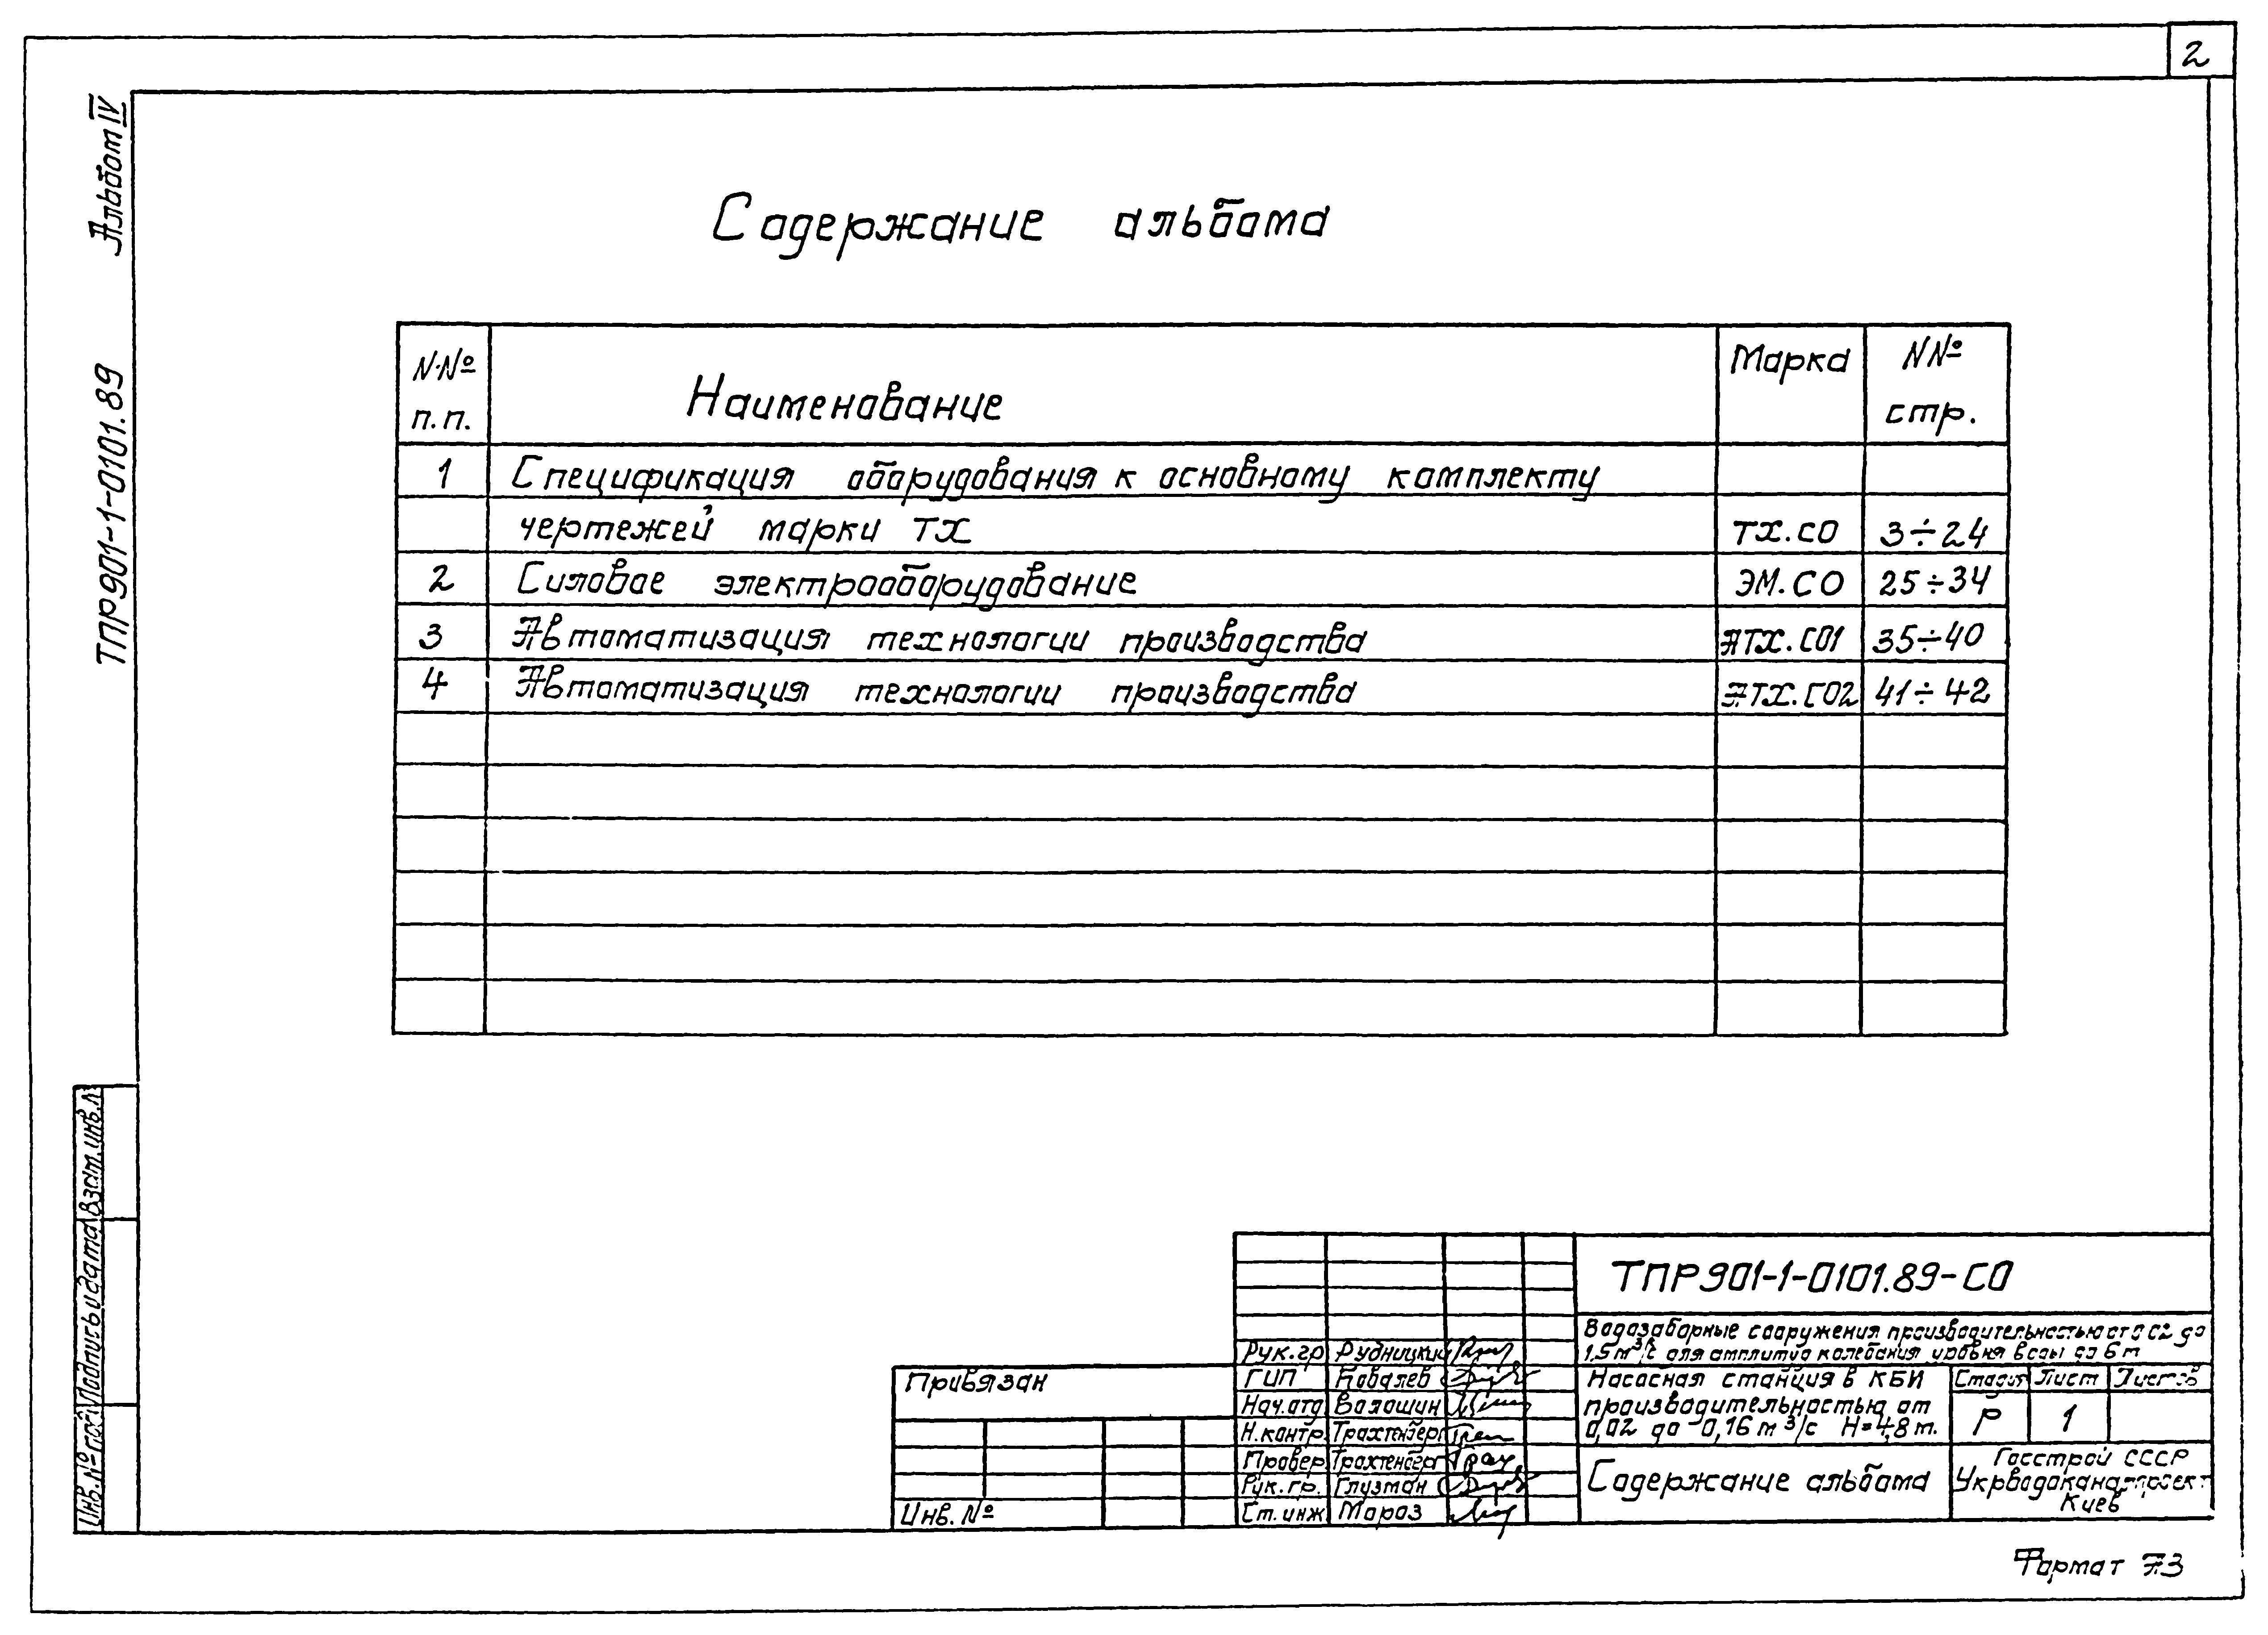 2
Альбом IV
ТПР901-1-0101.89
Содержание альбома
N.№ п.п.
Наименование
Марка
N№ стр.
1 Спецификация оборудования к основному комплекту
чертежей марки ТХ ТХ.СО 3÷24
2 Силовое электрооборудование ЭМ.СО 25÷34
3 Автоматизация технологии производства АТХ.СО1 35÷40
4 Автоматизация технологии производства АТХ.СО2 41÷42
Взам.инв.№
Подпись и дата
Инв.№ подл
Привязан
Инв. №
Рук.гр Рудницкий
ГИП Ковалев
Нач.отд Волошин
Н.контр. Трахтенберг
Провер. Трахтенберг
Рук.гр. Глузман
Ст.инж Мороз
ТПР901-1-0101.89-СО
Водозаборные сооружения производительностью от 0,02 до
1,5 м³/с для амплитуд колебания уровня воды до 6 м
Насосная станция в КБИ
производительностью от
0,02 до 0,16 м³/с Н=4,8 м.
Стадия Лист Листов
Р 1
Содержание альбома
Госстрой СССР
Укрводоканалпроект
Киев
Формат А3